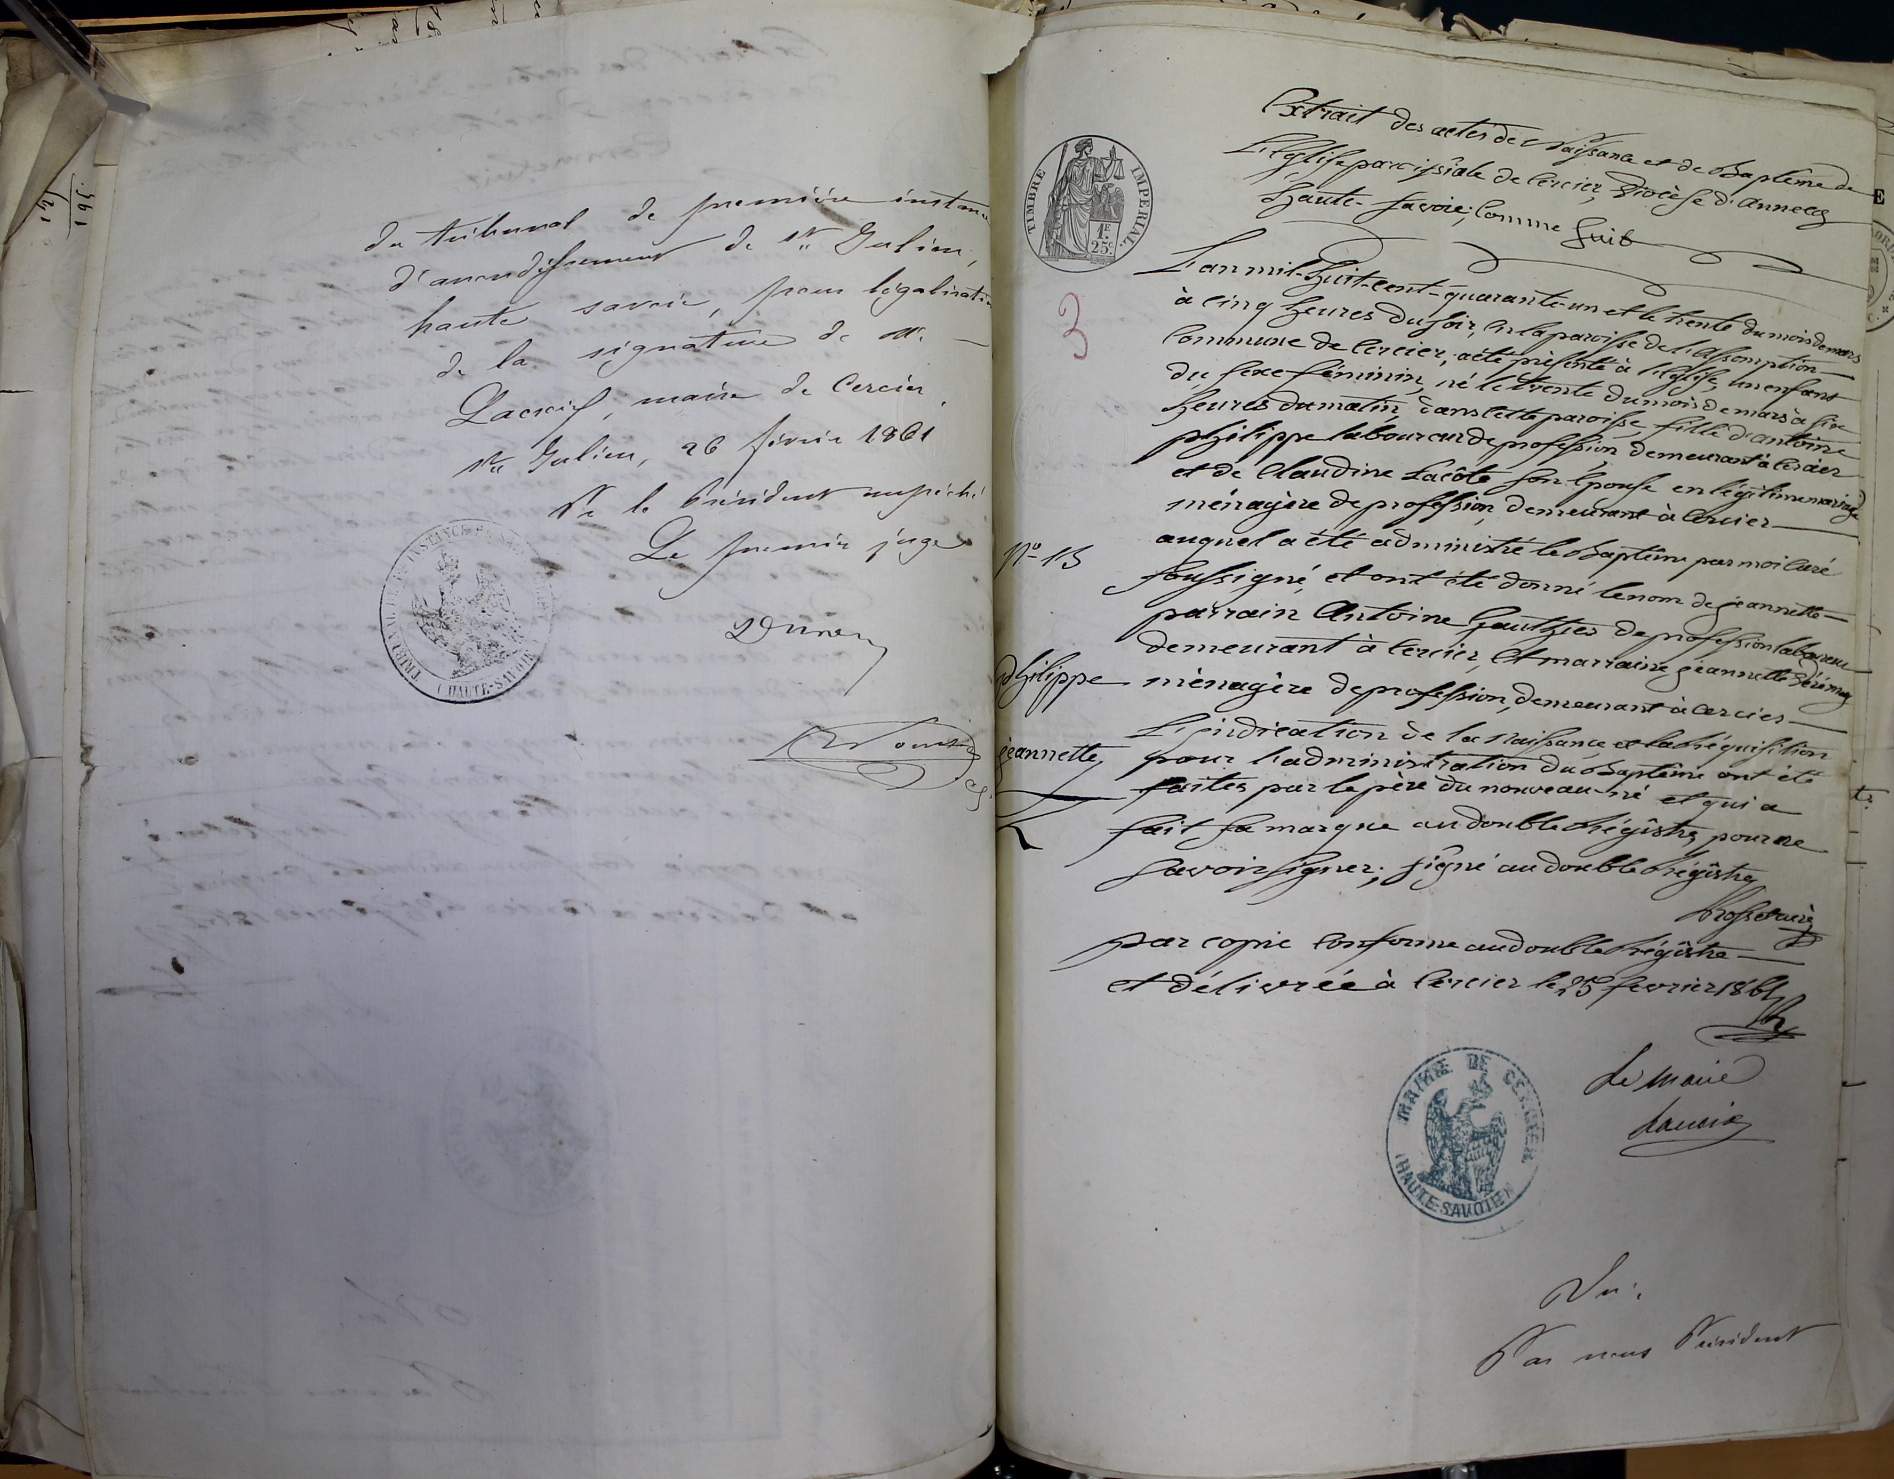 du tribunal de première instance
d'arrondissement de St Julien,
haute savoie, pour légalisation
de la signature de Mr.
maire de Cercier,
St Julien, 26 février 1861
Pr le Président empêché
Le premier juge
TRIBUNAL DE Ière INSTANCE DE
(HAUTE-SAVOIE)
TIMBRE IMPERIAL.
1F
25c
3
Extrait des actes de Naissance et de Baptême de
L'Eglise paroissiale de Cercier, Diocèse d'Annecy
Haute-Savoie; Comme suit
L'an mil-huit-cent-quarante-un et le trente du mois de mars
à cinq heures du soir, en la paroisse de l'Assomption
Commune de Cercier, a été présenté à l'Eglise, un enfant
du sexe féminin, né le trente du mois de mars à six
heures du matin, dans cette paroisse, fille d'antoine
philippe laboureur de profession demeurant à Cercier
et de Claudine Lacôte son épouse en légitime mariage
ménagère de profession, demeurant à Cercier
auquel a été administré le Baptême par moi Curé
N° 13
soussigné, et ont été donné le nom de jeannette
parrain Antoine Gauthier de profession laboureur
demeurant à Cercier, Et marraine, jeannette
philippe
ménagère de profession, demeurant à Cercier
L'indication de la Naissance et la Réquisition
jeannette
pour l'administration du Baptême ont été
faites par le père du nouveau-né et qui a
fait sa marque au double Régistre, pour ne
savoir signer; signé au double Régistre
par copie conforme au double Régistre
et délivrée à Cercier le 25 fevrier 1861
Le Maire
MAIRIE DE CERCIER
(HAUTE-SAVOIE)
Vu:
Par nous Président